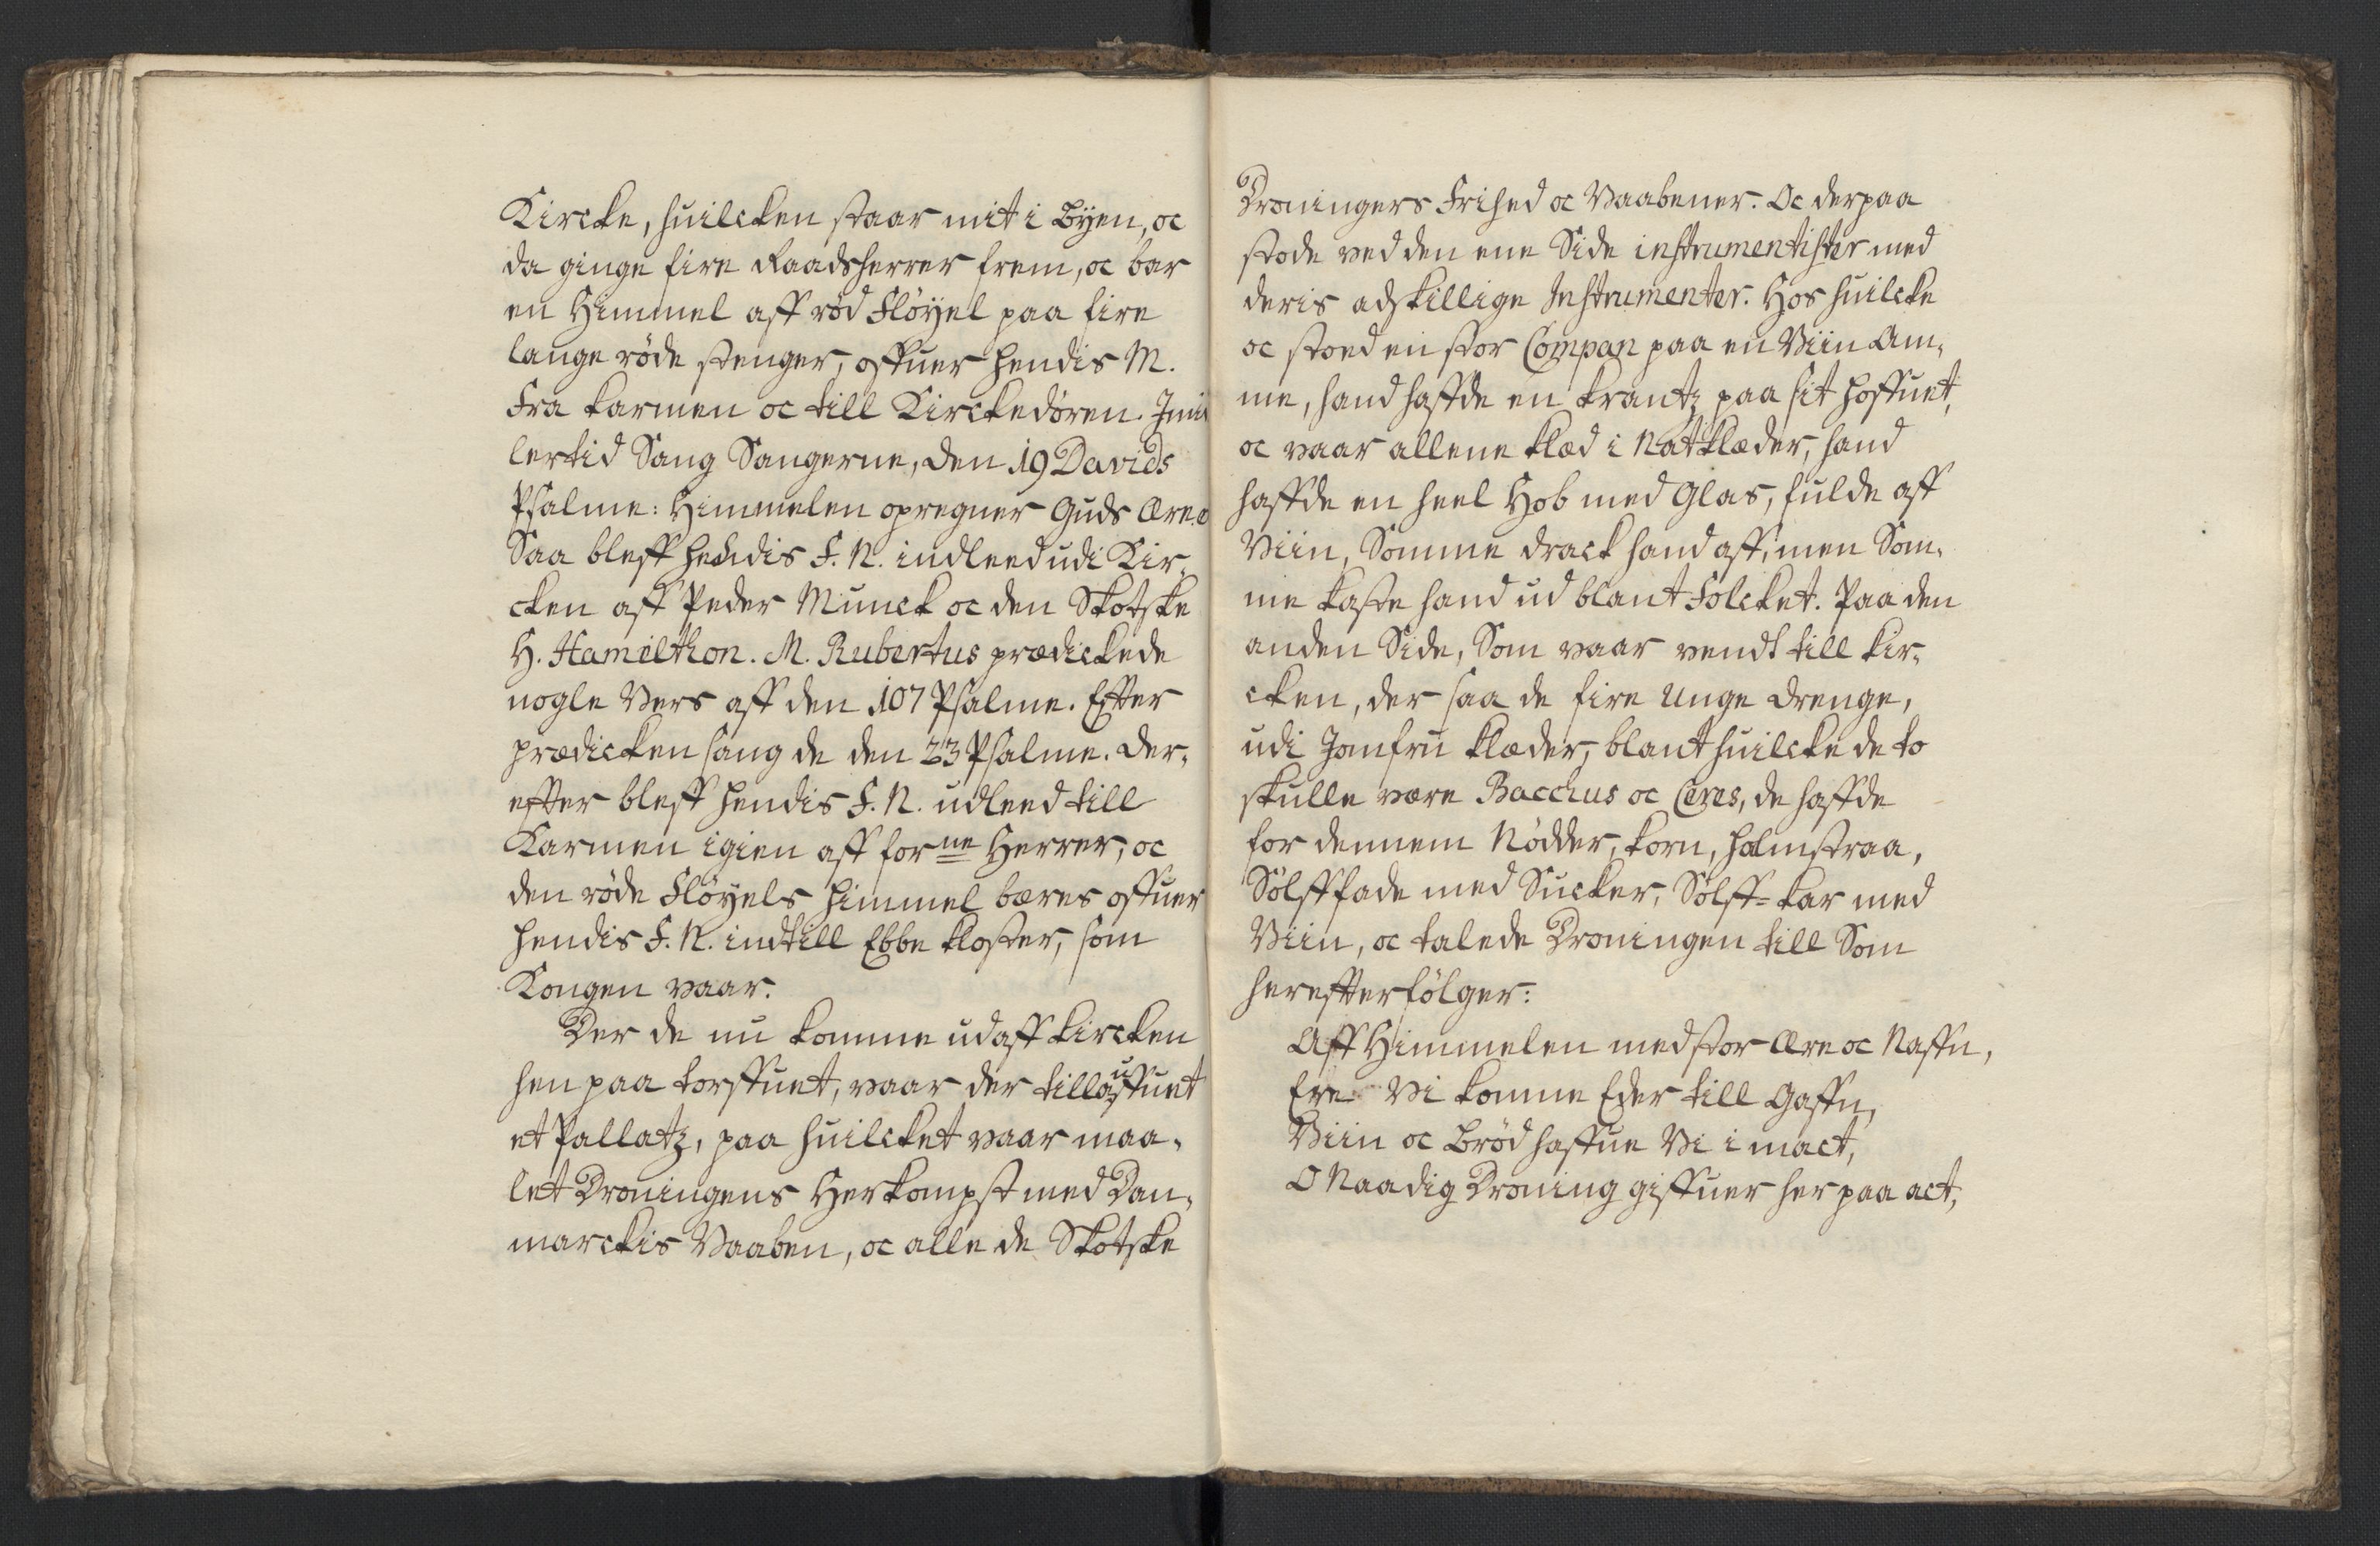 Kircke, huilcken staar mit i Byen, oc
da ginge fire Raadsherrer frem, oc bar
en Himmel aff rød Fløyel paa fire
lange røde stenger, offuer hendis M.
Fra karmen oc till Kirckedøren. Imid
lertid Sang Sangerne, den 19 Davids
Psalme: Himmelen opregner Guds Ære
Saa bleff hendis F. N. indleed udi Kir,
cken aff Peder Munck oc den Skotske
H. Hamilthon. M. Rubertus prædickede
nogle Vers aff den 107 Psalme. Efter
prædicken sang de den 23 Psalme. der,
effter bleff hendis F. N. udleed till
Karmen igien aff forne Herrer, oc
den røde Fløyels himmel bæres offuer
hendis F. N. indtill Ebbe kloster, som
Kongen vaar.
Der de nu komme ud aff kircken
hen paa torffuet, vaar der till
et Pallatz, paa huilcket vaar maa,
let Droningens Herkompst med Dan,
marckis Vaaben, oc alle de Skotske
Droningers Frihed oc Vaabener. Oc der paa
stode ved den ene Side instrumentister med
deris adskillige Instrumenter. Hos huilcke
oc stoed en stor Compan paa en Viin Am,
me, hand haffde en krantz paa sit hoffuet,
oc vaar allene klæd i Natklæder, hand
haffde en heel Hob med Glas, fulde aff
Viin, Somme drack hand aff, men Som,
me kaste hand ud blant Folcket. Paa den
anden Side, Som vaar vendt till kir,
cken, der saa de fire unge drenge,
udi Jomfru klæder, blant huilcke de to
skulle være Bacchus oc Ceres, de haffde
for dennem Nødder, korn, halmstraa,
Sølffade med Sucker, Sølff-kar med
Viin, oc talede Droningen till Som
hereffterfølger:
Aff Himmelen med stor Ære oc Naffn,
Ere Vi komme Eder till Gaffn,
Viin oc Brød haffue Vi i mact,
O Naadig Droning giffuer her paa act,